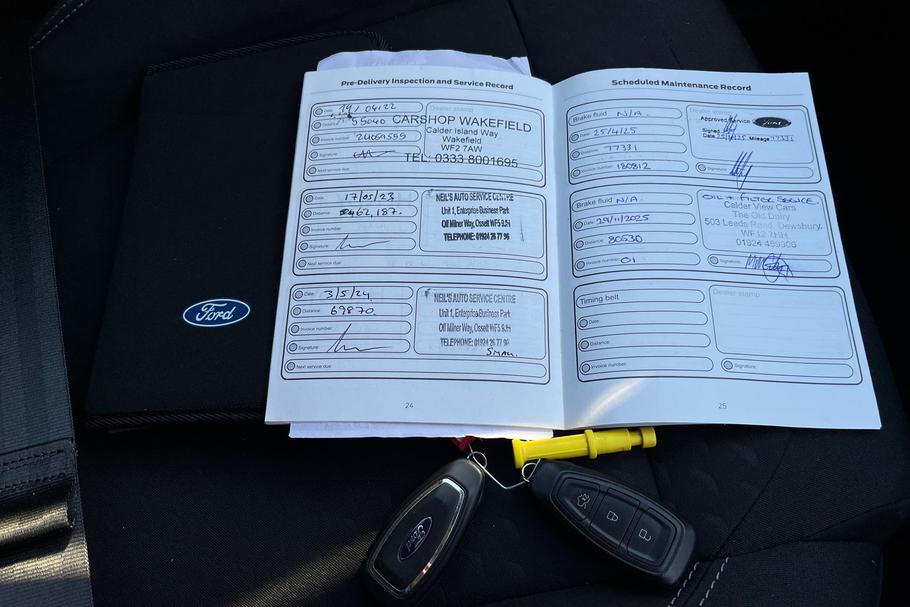 Pre-Delivery Inspection and Service Record
Date: 19/04/22
Distance: 55040
Invoice number: 24069559
Signature:
Next service due:
CARSHOP WAKEFIELD
Calder Island Way
Wakefield
WF2 7AW
TEL: 0333 8001695
Date: 17/05/23
Distance: 62,187.
Invoice number:
Signature:
Next service due:
NEIL'S AUTO SERVICE CENTRE
Unit 1, Enterprise Business Park
Off Milner Way, Ossett WF5 9JN
TELEPHONE: 01924 26 77 96
Date: 3/5/24
Distance: 69870.
Invoice number:
Signature:
Next service due:
NEIL'S AUTO SERVICE CENTRE
Unit 1, Enterprise Business Park
Off Milner Way, Ossett WF5 9JN
TELEPHONE: 01924 26 77 96
SMALL.
24
Scheduled Maintenance Record
Brake fluid N/A.
Date: 25/4/25
Distance: 77331
Invoice number: 180812
Dealer stamp
Approved Service
Signed
Date 25/4/25 Mileage 77331
Signature:
Brake fluid N/A.
Date: 29/11/2025
Distance: 80530
Invoice number: 01
OIL + FILTER SERVICE
Calder View Cars
The Old Dairy
503 Leeds Road, Dewsbury,
WF12 7HH
01924 459906
Signature:
Timing belt
Date:
Distance:
Invoice number:
Dealer stamp
Signature:
25
Ford
Ford